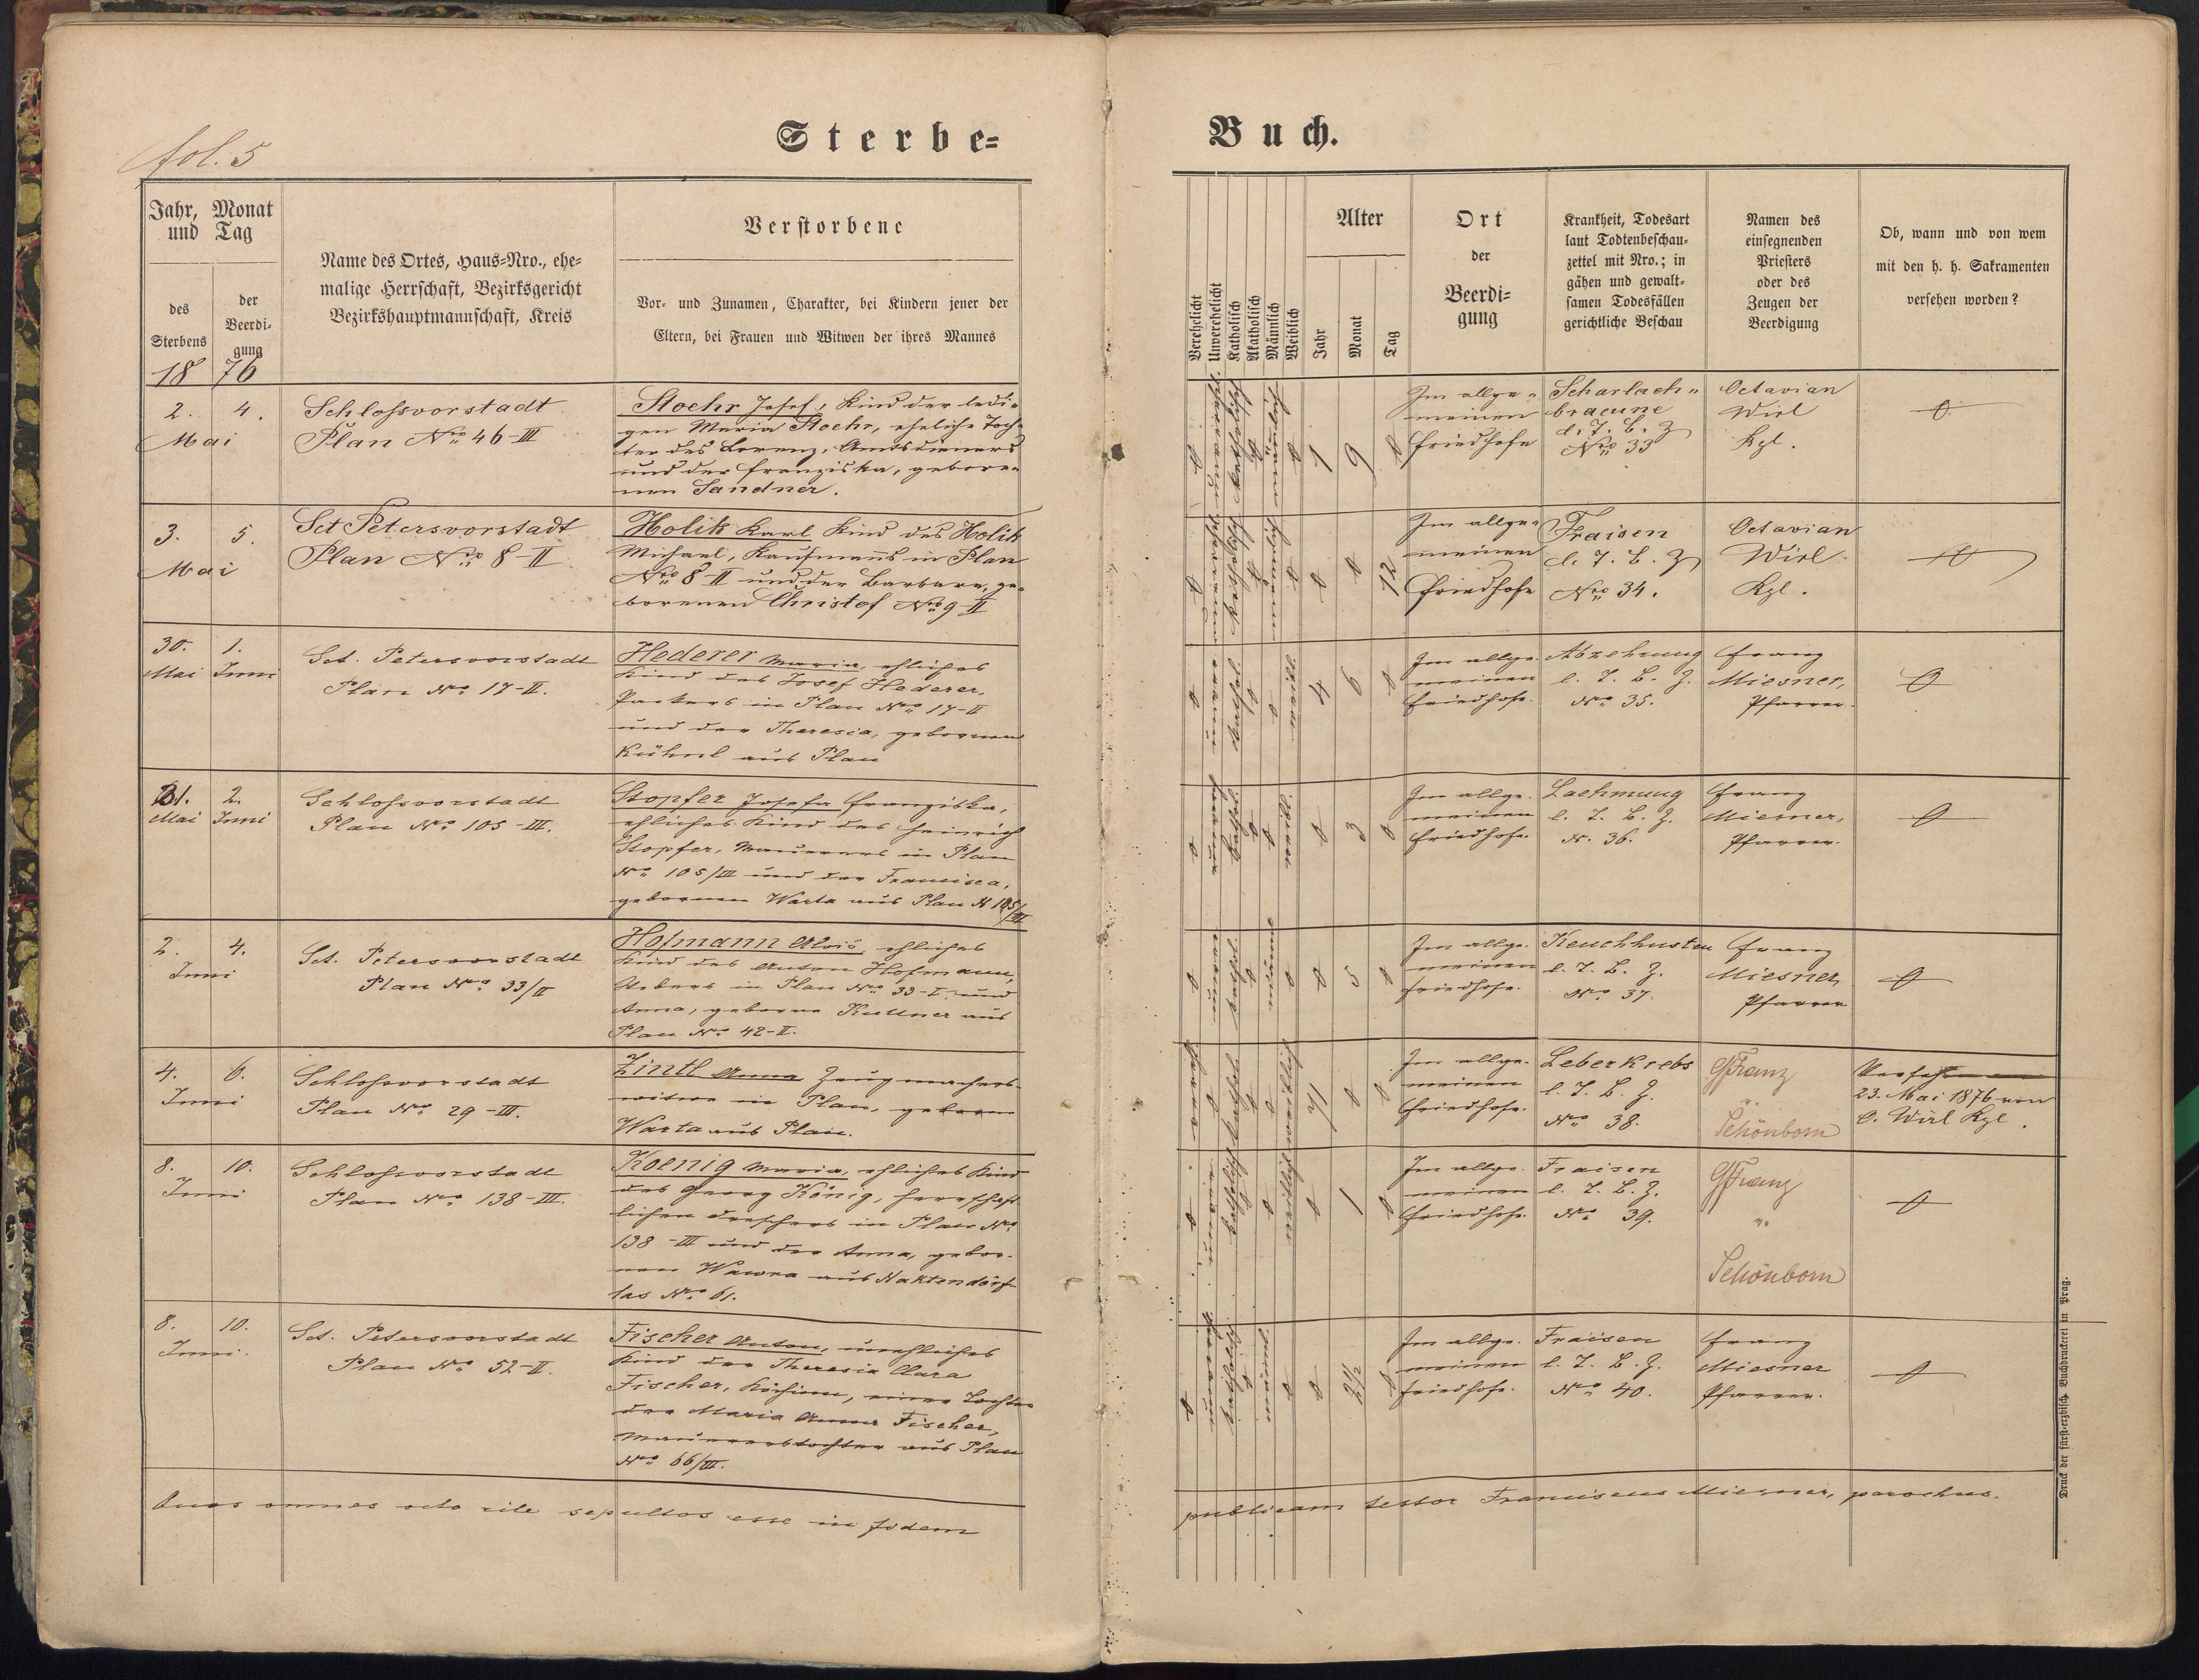 fol. 5
Sterbe=
Buch.
Jahr, Monat
und Tag
des
Sterbens
der
Beerdi-
gung
1876
Name des Ortes, Haus-Nro., ehe-
malige Herrschaft, Bezirksgericht
Bezirkshauptmannschaft, Kreis
Verstorbene
Vor- und Zunamen, Charakter, bei Kindern jener der
Eltern, bei Frauen und Witwen der ihres Mannes
Verehelicht
Unverehelicht
Katholisch
Akatholisch
Männlich
Weiblich
Alter
Jahr
Monat
Tag
Ort
der
Beerdi-
gung
Krankheit, Todesart
laut Todtenbeschau-
zettel mit Nro.; in
gähen und gewalt-
samen Todesfällen
gerichtliche Beschau
Namen des
einsegnenden
Priesters
oder des
Zeugen der
Beerdigung
Ob, wann und von wem
mit den h. h. Sakramenten
versehen worden?
2. 4.
Mai
Schloßvorstadt
Plan Nro 46-III
Stoehr Josef, Kind der ledi-
gen Maria Stoehr, eheliche Toch-
ter des Lorenz, Amtsdieners
und der Franziska, gebore-
nen Sandner.
1 9
Im allge-
meinen
Friedhofe
Scharlach-
braeune
l. T. B. Z
Nro 33
Octavian
Wirl
Kpl.
3. 5.
Mai
Sct Petersvorstadt
Plan Nro 8-II
Holik Karl Kind des Holik
Michael, Kaufmanns in Plan
Nro 8-II und der Barbara, ge-
borenen Christof Nro 9-II
12
Im allge-
meinen
Friedhofe
Fraisen
l. T. B. Z
Nro 34.
Octavian
Wirl.
Kpl.
30. 1.
Mai Juni
Sct. Petersvorstadt
Plan Nro 17-II.
Hederer Maria, ehliches
Kind des Josef Hederer,
in Plan Nro 17-II
und der Theresia, gebornen
Kühnl aus Plan
4 6
Im allge-
meinen
Friedhofe.
Abzehrung
l. T. B. Z.
Nro 35.
Franz
Miesner,
Pfarrer.
31. 2.
Mai Juni
Schloßvorstadt
Plan Nro 105-III.
Stopfer Josefa Franziska,
ehliches Kind des Heinrich
Stopfer, Maurers in Plan
Nro 105/III und der Francisca,
gebornen Warta aus Plan N 105/III
3
Im allge-
meinen
Friedhofe.
Laehmung
l. T. B. Z.
N. 36.
Franz
Miesner,
Pfarrer.
2. 4.
Juni
Sct. Petersvorstadt
Plan Nro 33/II
Hofmann Alois, ehliches
Kind des Anton Hofmann,
Webers in Plan Nro 33-I. und
Anna, geborne Kuttner aus
Plan Nro 42-II.
5
Im allge-
meinen
Friedhofe.
Keuchhusten
l. T. B. Z.
Nro 37.
Franz
Miesner,
Pfarrer
4. 6.
Juni
Schloßvorstadt
Plan Nro 29-III.
Zintl Anna Zeugmachers-
witwe in Plan, geborne
Warta aus Plan.
Im allge-
meinen
Friedhofe.
Leberkrebs
l. T. B. Z.
Nro 38.
Franz
v.
Schönborn
Versehen am
23. Mai 1876 von
O. Wirl Kpl.
8. 10.
Juni
Schloßvorstadt
Plan Nro 138-III.
Koenig Maria, ehliches Kind
des Georg König, herrschaft-
lichen Dreschers in Plan Nro
138-III und der Anna, gebor-
nen Wawra aus Naktendörf-
las Nro 61.
1
Im allge-
meinen
Friedhofe.
Fraisen
l. T. B. Z.
Nro 39.
Franz
v.
Schönborn
8. 10.
Juni.
Sct. Petersvorstadt
Plan Nro 52-II.
Fischer Anton, unehliches
Kind der Theresia Clara
Fischer, Köchinn, einer Tochter
der Maria Anna Fischer,
Maurerstochter aus Plan
Nro 66/III.
2 1/2
Im allge-
meinen
Friedhofe.
Fraisen
l. T. B. Z.
Nro 40.
Franz
Miesner
Pfarrer.
omnes octo rite sepultos esse in fidem
publicam testor Franciscus Miesner, parochus.
Druck der fürst-erzbisch. Buchdruckerei in Prag.